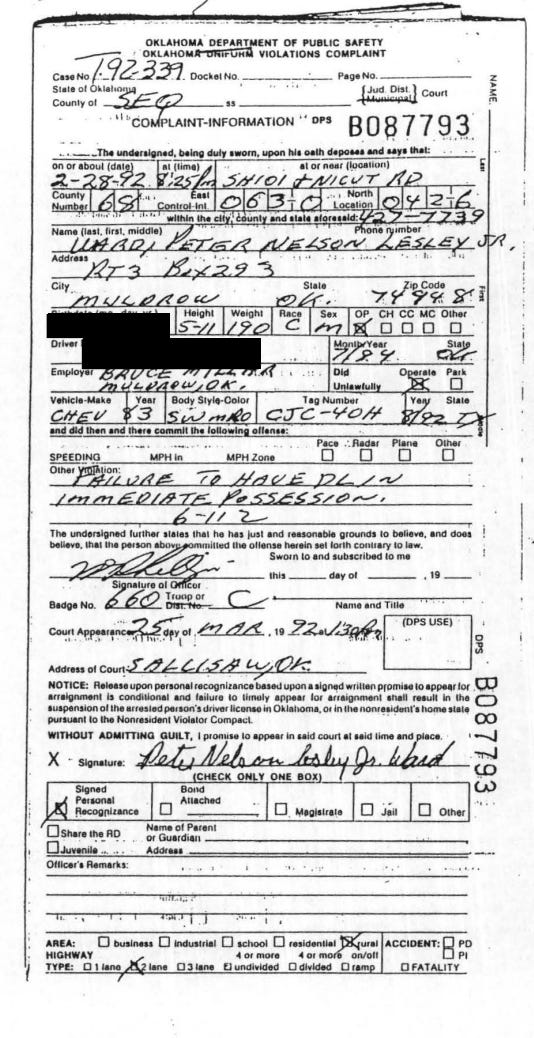 OKLAHOMA DEPARTMENT OF PUBLIC SAFETY
OKLAHOMA UNIFORM VIOLATIONS COMPLAINT
Case No. T-92-339 Docket No. Page No.
State of Oklahoma
County of SEQ ss { Jud. Dist. Municipal } Court
COMPLAINT-INFORMATION DPS B087793
The undersigned, being duly sworn, upon his oath deposes and says that:
on or about (date) at (time) at or near (location)
2-28-92 8:25pm SH101 & NICUT RD
County Number 68 East Control-Int. 063-0 North Location 042-6
within the city, county and state aforesaid: 427-7739
Name (last, first, middle) Phone number
WARD, PETER NELSON LESLEY JR.
Address
RT3 Box 293
City State Zip Code
MULDROW OK. 74948
Height Weight Race Sex OP CH CC MC Other
5-11 190 C M
Driver Month/Year State
7/94 OK
Employer BRUCE MILLAR Did Operate Park
MULDROW, OK. Unlawfully
Vehicle-Make Year Body Style-Color Tag Number Year State
CHEV 83 SW CJC-40H 8/92 TX
and did then and there commit the following offense:
Pace Radar Plane Other
SPEEDING MPH in MPH Zone
Other Violation:
FAILURE TO HAVE DL IN
IMMEDIATE POSSESSION.
6-112
The undersigned further states that he has just and reasonable grounds to believe, and does
believe, that the person above committed the offense herein set forth contrary to law.
Sworn to and subscribed to me
this day of , 19
Signature of Officer
Badge No. 660 Troop or Dist. No. C Name and Title
Court Appearance 25 day of MAR, 19 92 at 1:30Pm (DPS USE)
Address of Court SALLISAW, OK.
NOTICE: Release upon personal recognizance based upon a signed written promise to appear for
arraignment is conditional and failure to timely appear for arraignment shall result in the
suspension of the arrested person's driver license in Oklahoma, or in the nonresident's home state
pursuant to the Nonresident Violator Compact.
WITHOUT ADMITTING GUILT, I promise to appear in said court at said time and place.
X Signature: Peter Nelson Lesley Jr. Ward
(CHECK ONLY ONE BOX)
Signed Personal Recognizance Bond Attached Magistrate Jail Other
Share the RD Name of Parent or Guardian
Juvenile Address
Officer's Remarks:
AREA: business industrial school residential rural ACCIDENT: PD
HIGHWAY 4 or more 4 or more on/off PI
TYPE: 1 lane 2 lane 3 lane undivided divided ramp FATALITY
NAME
Last
First
DPS
B087793